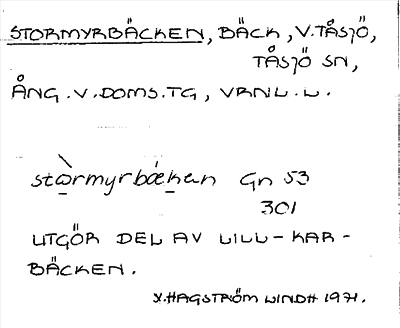 STORMYRBÄCKEN, BÄCK, V. TÅSJÖ,
TÅSJÖ SN,
ÅNG. V. DOMS. TG, VRNL. L.
stòrmyrbækan Gn 53
301
UTGÖR DEL AV LILL-KAR-
BÄCKEN.
HAGSTRÖM LINDH 1971.